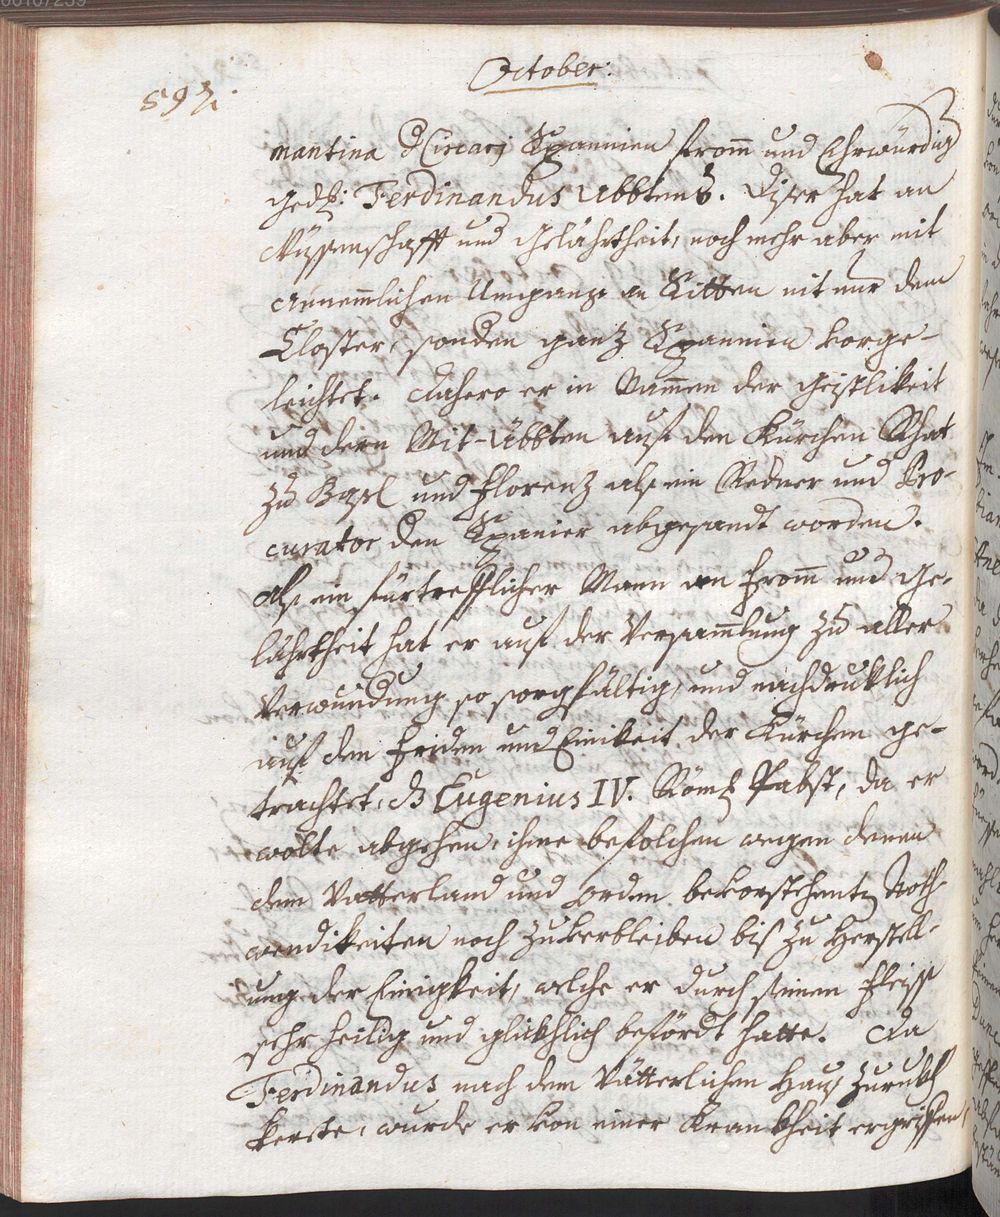 October:
597.
mantina Circarj Spannien fromm und Ehrwürdig
gedß: Ferdinandus Abbten8. Diser hat an
Wißenschafft und gelährtheit, noch mehr aber mit
Annemmlichen Umgange an Sitten nit nur dem
Closter, sonden ganz Spannien vorge-
leichtet. Dahero er in Nammen der geistlikeit
und dern Mit-Äbbten auf den Kürchen Rhat
zu Basl und Florenz als ein Redner und Pro-
curator den Spanier abgesandt worden.
Als ein fürtrefflicher Mann an fromm und ge-
lährtheit hat er auf der Versammlung zu aller
Verwundung so sorgfältig, und nachdruklich
auf den Friden und Einikeit der Kürchen ge-
trachtet, dß Eugenius IV. Römß Pabst, da er
wolte abgehen, ihme befolchen wegen denen
dem Vatterland und orden bevorstehentn Noth-
wendikeiten noch zuverbleiben bis zu Herstell-
ung der Einigkeit, welche er durch seinen Fleiss
sehr heilig und glückhlich befördt hatte. Da
Ferdinandus nach dem Vätterlichen Haus zurukh
kerete, wurde er von einer Krankheit ergriffen,